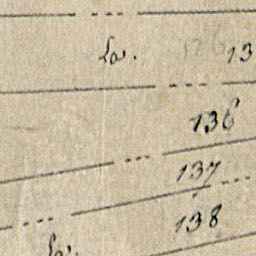 La. 13
136
137
138
La.